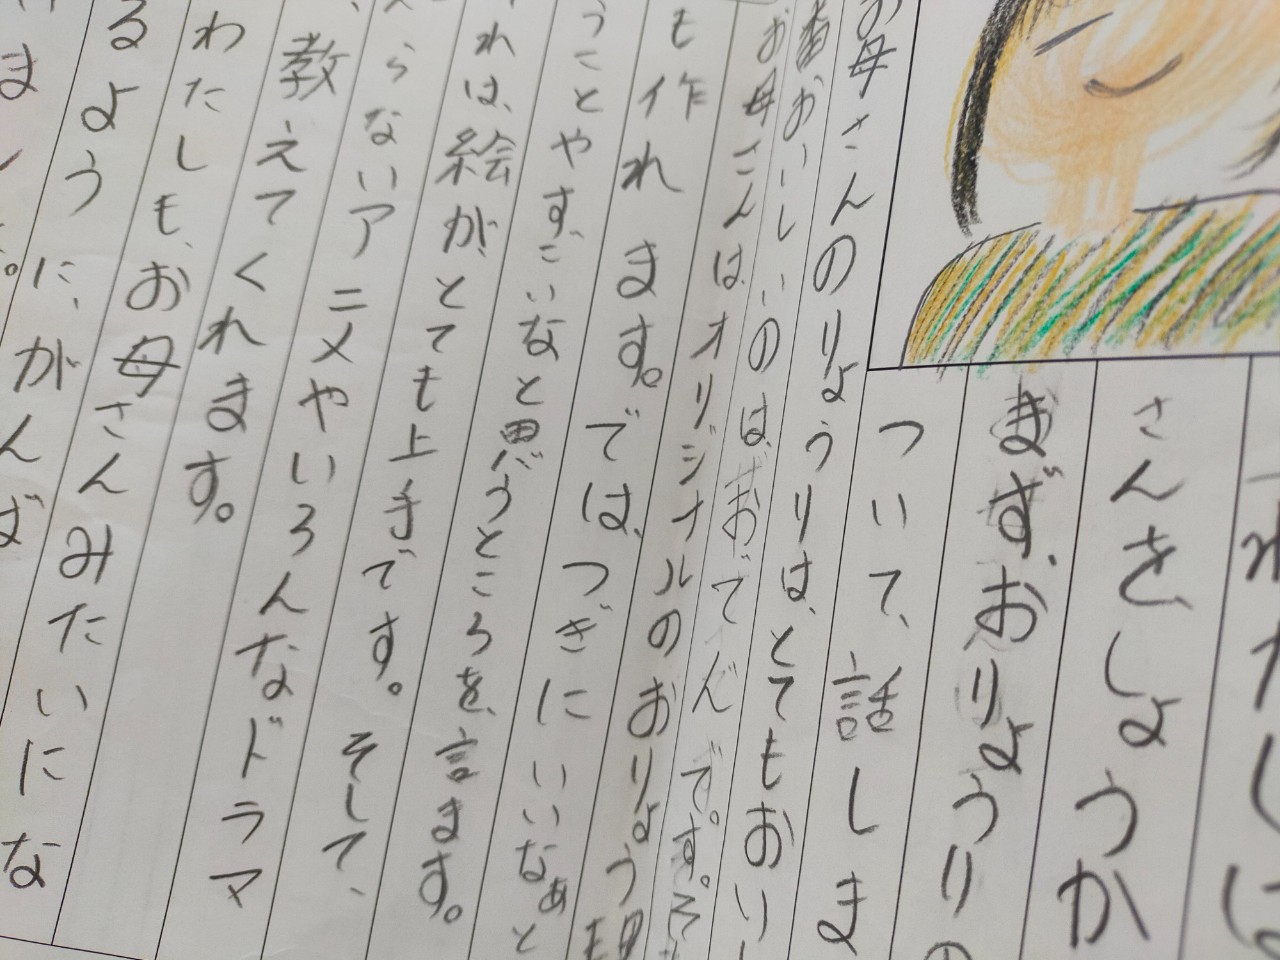 わたしは
さんをしょうか
まず、おりょうりの
ついて、話しま
お母さんのりょうりは、とてもおい
番おいしいのは、おでんです。
お母さんはオリジナルのおりょう理
も作れます。では、つぎにいいなあと
うことやすごいなと思うところを、言ます。
れは、絵がとても上手です。そして、
らないアニメやいろんなドラマ
教えてくれます。
わたしも、お母さんみたいにな
るように、がんば